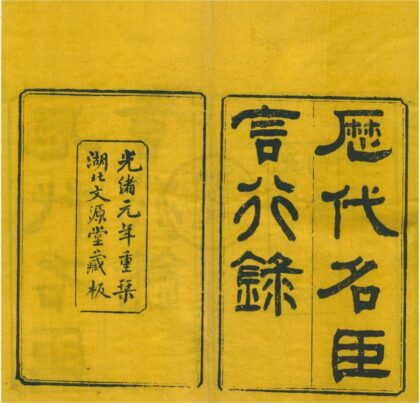 歷代名臣
言行錄
光緒元年重栞
湖北文源堂藏板